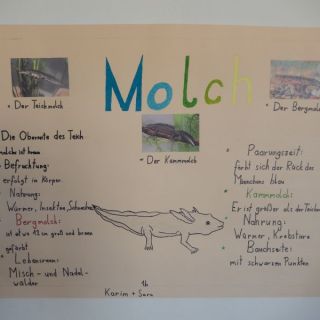 Molch
• Der Teichmolch
• Der Kammmolch
• Der Bergmolch
• Die Oberseite des Teich
molchs ist braun
• Befruchtung:
erfolgt in Körper
• Nahrung:
Würmer, Insekten,
Bergmolch:
ist etwa 12 cm groß und braun
gefärbt
• Lebensraum:
Misch- und Nadel-
wälder
• Paarungszeit:
färbt sich der Rück des
Männchens blau
• Kammmolch:
Er ist größer als der
• Nahrung:
Würmer, Krebstiere
• Bauchseite:
mit schwarzen Punkten
1b
Karim + Sara